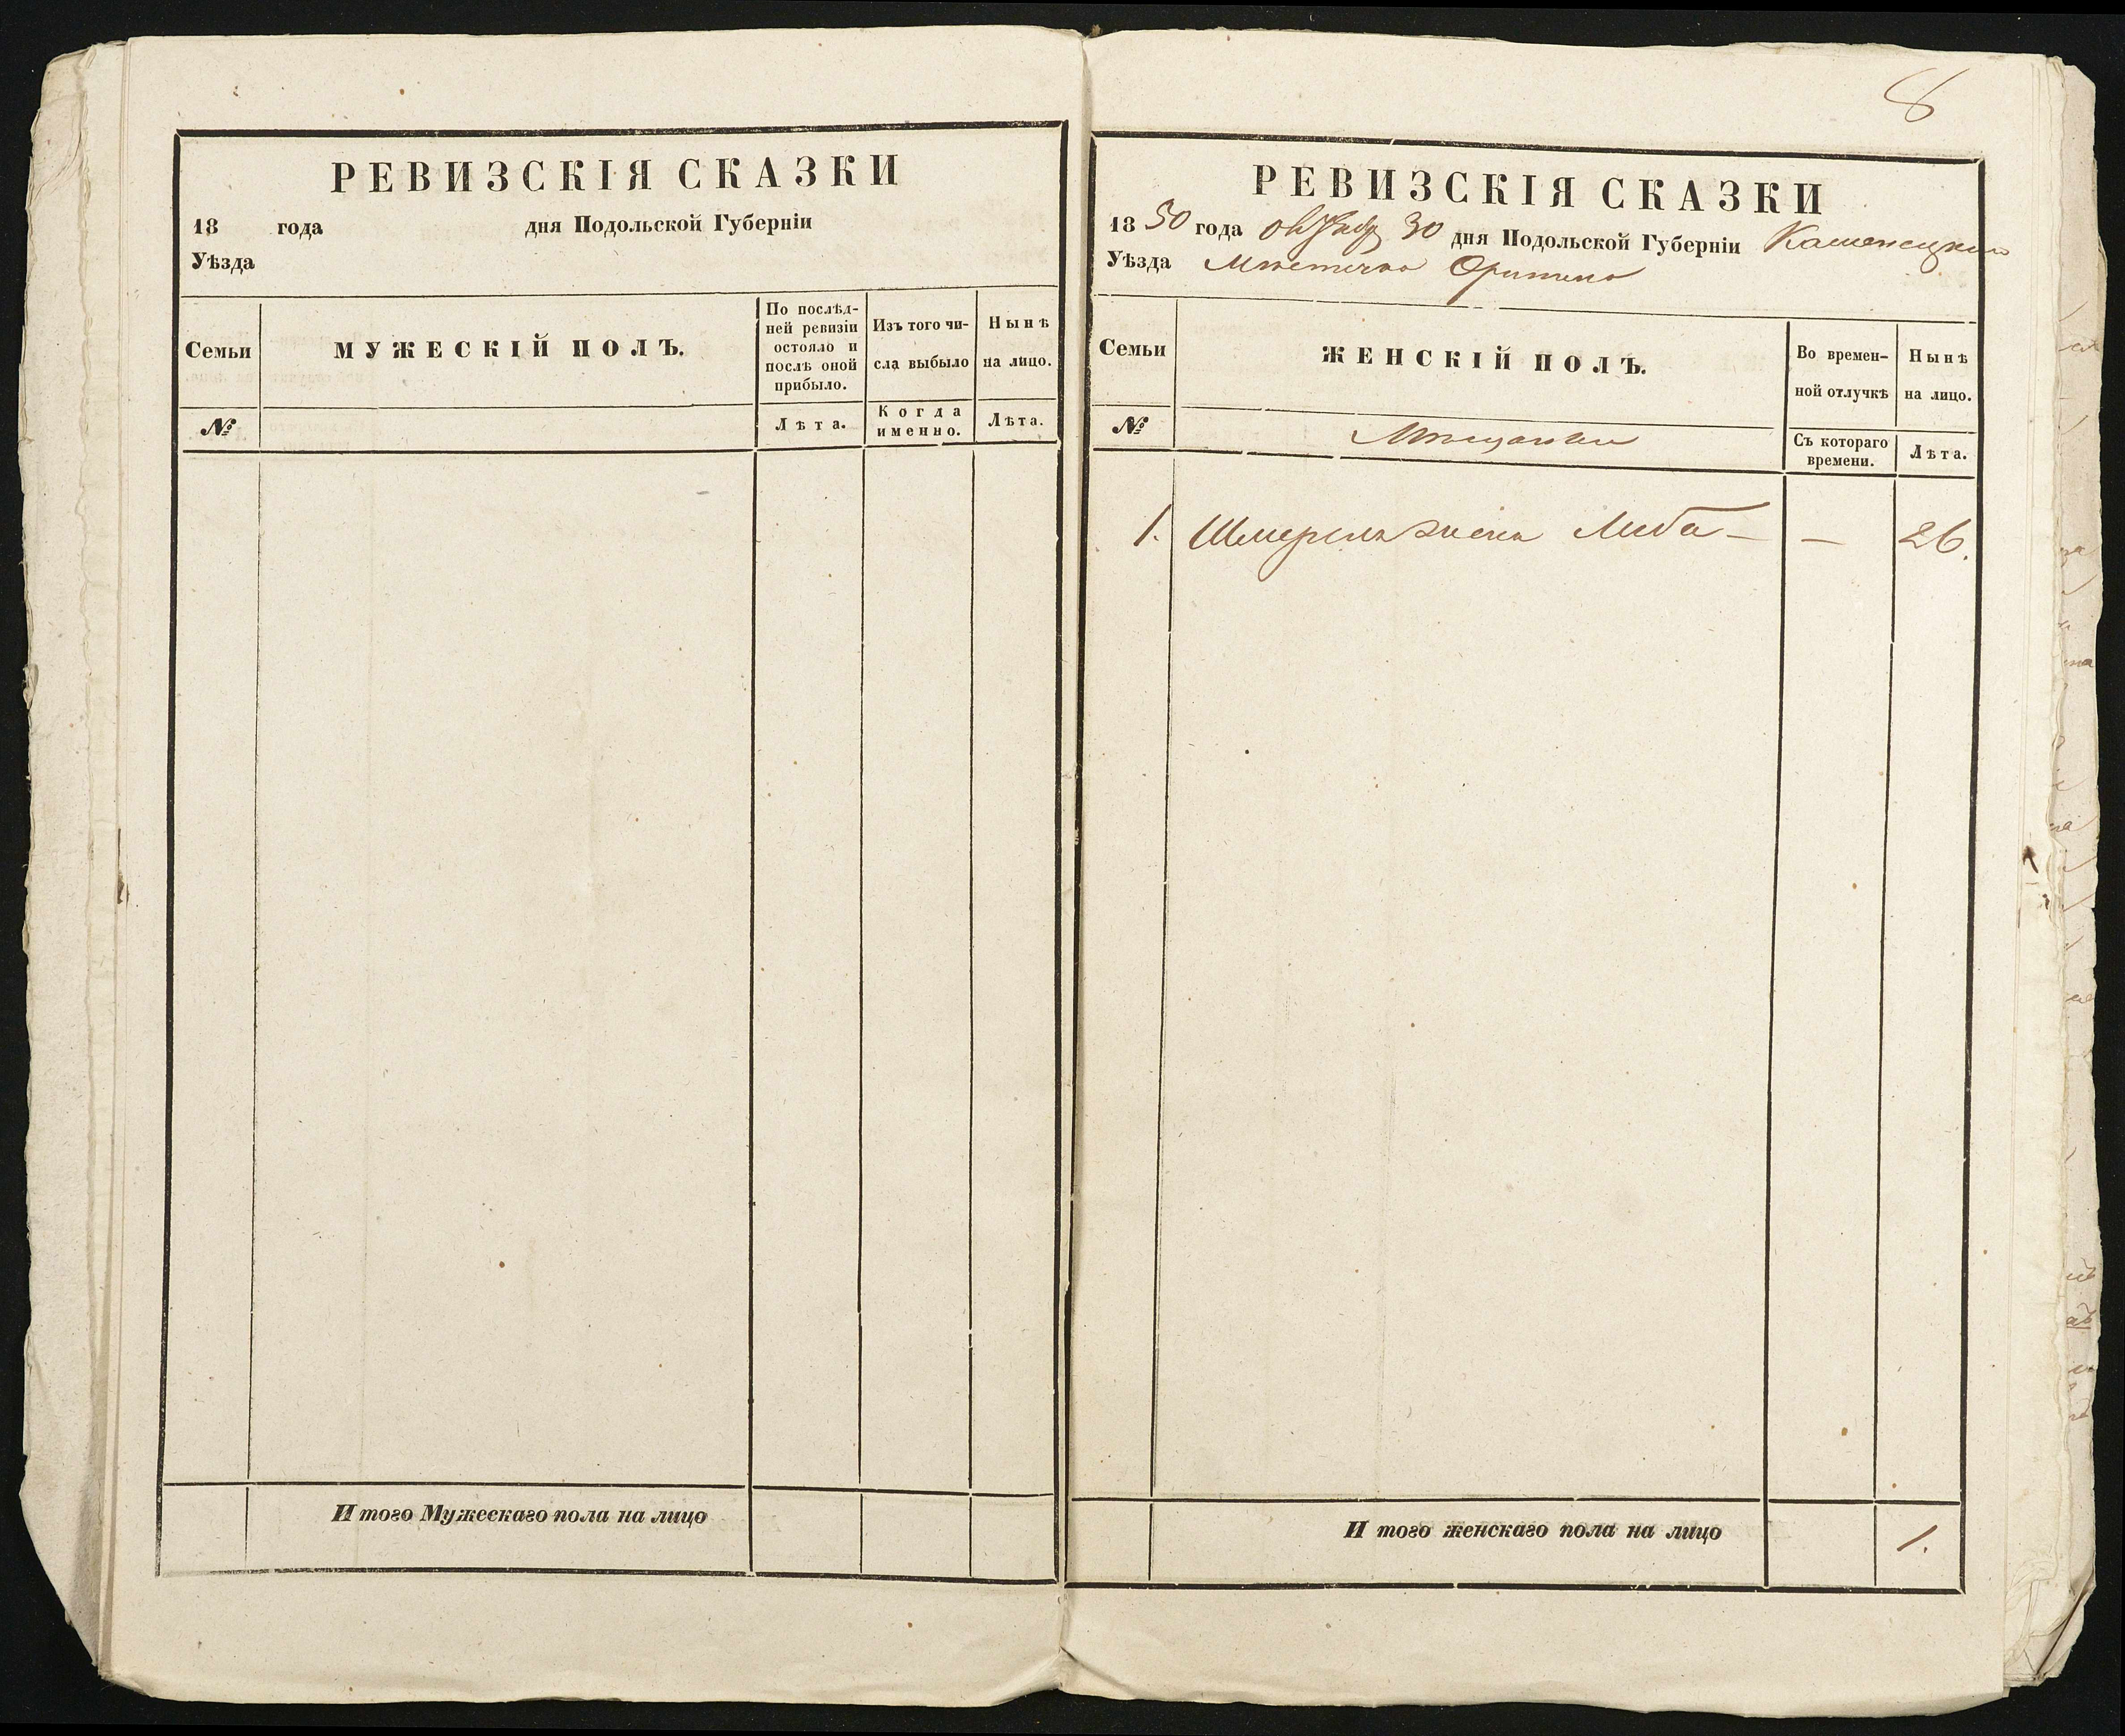 РЕВИЗСКІЯ СКАЗКИ
18 года дня Подольской Губерніи
Уѣзда
Семьи
МУЖЕСКІЙ ПОЛЪ.
По послѣд-
ней ревизіи
остояло и
послѣ оной
прибыло.
Изъ того чи-
сла выбыло
Нынѣ
на лицо.
№
Лѣта.
Когда
именно.
Лѣта.
Итого Мужескаго пола на лицо
8
РЕВИЗСКІЯ СКАЗКИ
1850 года октября 30 дня Подольской Губерніи Каменецкаго
Уѣзда Мѣстечка Оринина
Семьи
ЖЕНСКІЙ ПОЛЪ.
Во времен-
ной отлучкѣ
Нынѣ
на лицо.
№
Мѣщанки
Съ котораго
времени.
Лѣта.
1. Шмереля жена Либа — — 26.
И того женскаго пола на лицо 1.